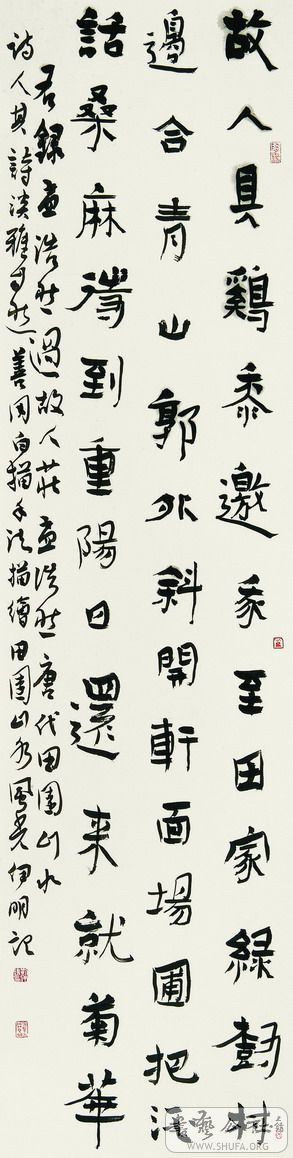 故人具鷄黍邀我至田家綠樹村
邊合青山郭外斜開軒面場圃把酒
話桑麻待到重陽日還来就菊華
右録孟浩然過故人莊孟浩然唐代田園山水
詩人其詩淡雅自然善用白描手法描繪田園山水風光伊明記
書藝公社
WWW.SHUFA.ORG